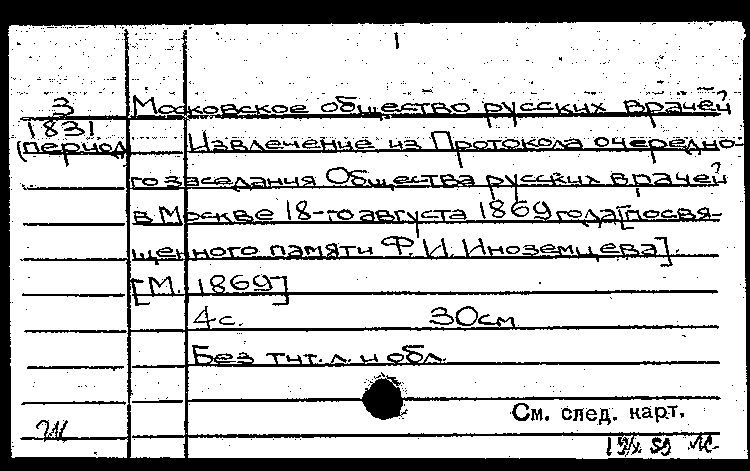 3
1831
(период
Московское общество русских врачей
Извлечение из Протокола очередно-
го заседания Общества русских врачей
в Москве 18-го августа 1869 года [посвя-
щенного памяти Ф. И. Иноземцева].
[М. 1869]
4 с. 30 см
Без тит. л. и обл.
См. след. карт.